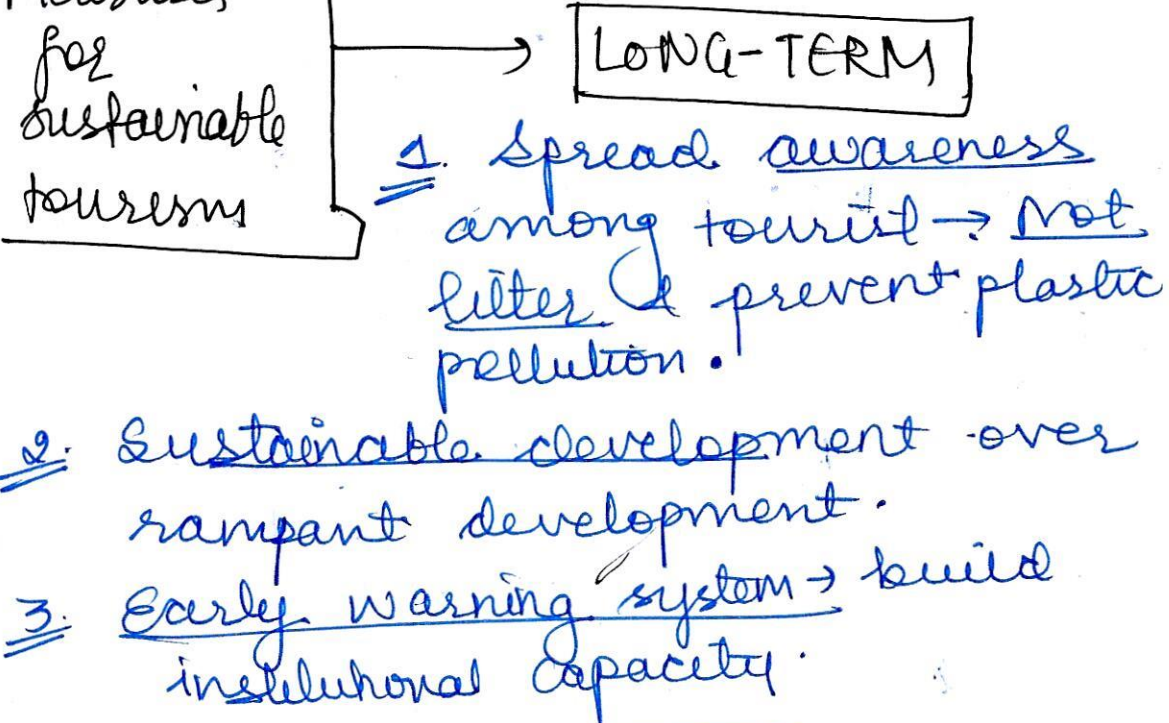 Measures
for
sustainable
tourism
→ LONG-TERM
1. Spread awareness
among tourist → Not
litter & prevent plastic
pollution.
2. Sustainable development over
rampant development.
3. Early warning system → build
institutional capacity.